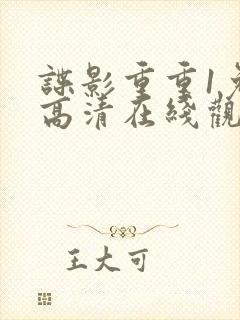 諜影重重1免
高清在綫觀
王大可